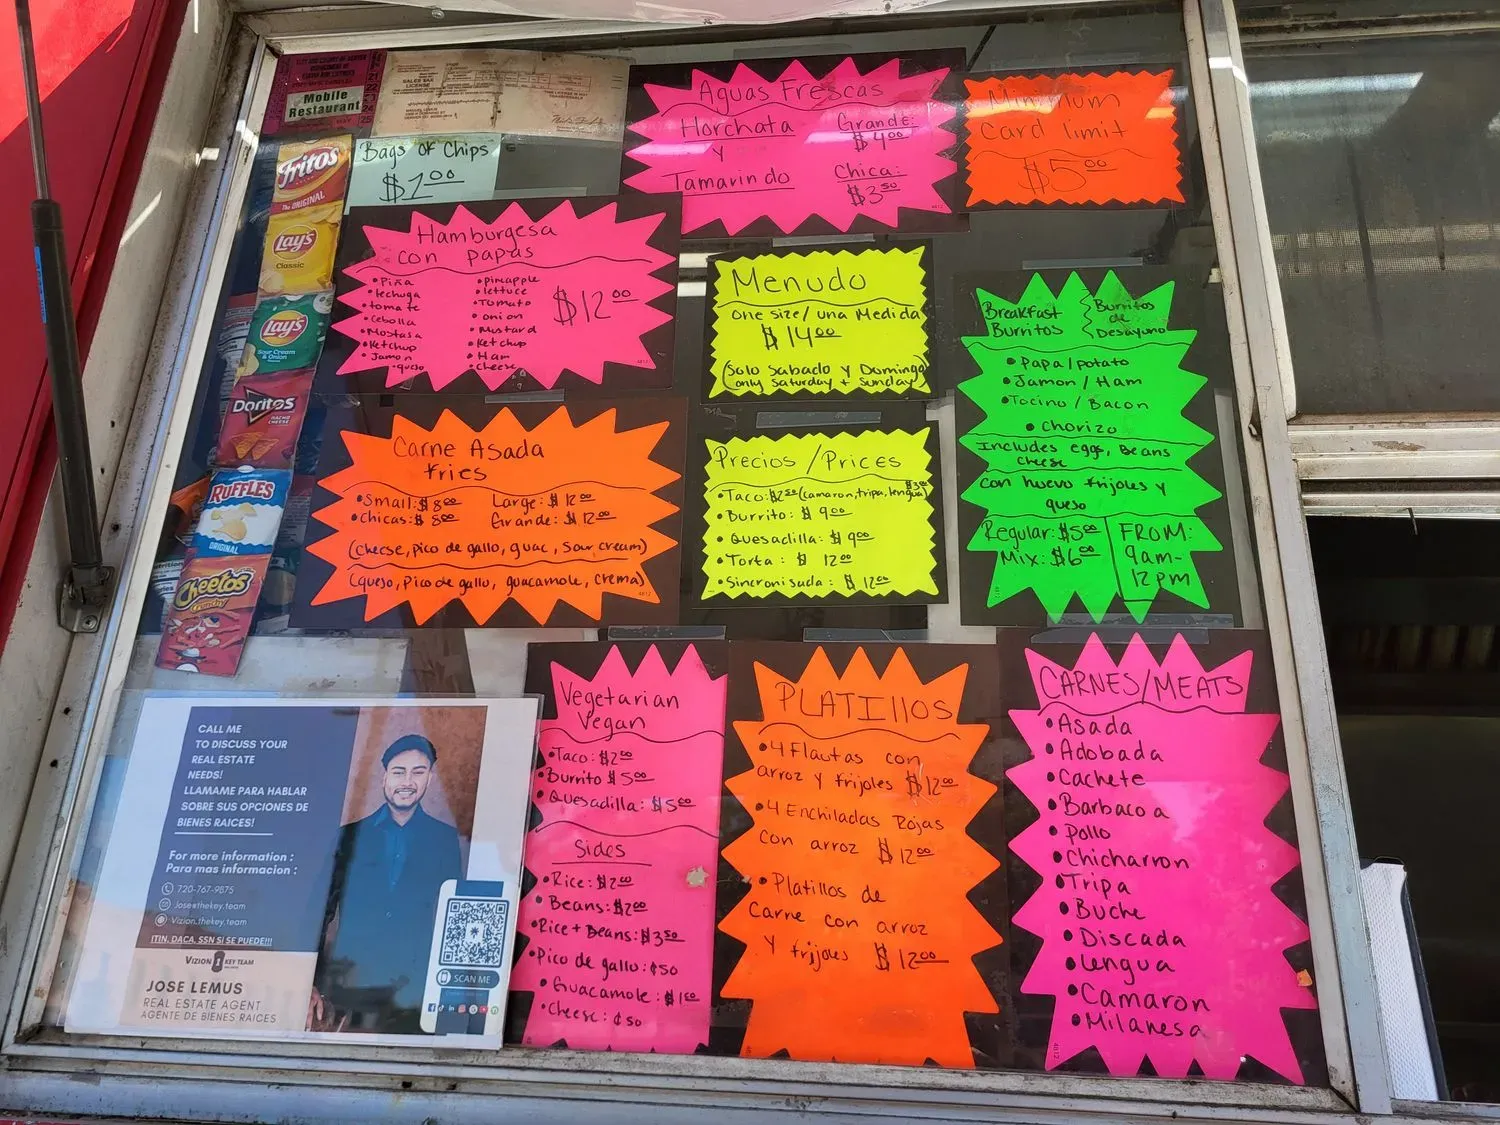 Mobile
Restaurant
SALES TAX
LICENSE
Fritos
The ORIGINAL
Lay's
Classic
Lay's
Sour Cream
& Onion
Doritos
NACHO
CHEESE
RUFFLES
ORIGINAL
Cheetos
Crunchy
Bags of Chips
$1.00
Aguas Frescas
Horchata
y
Tamarindo
Grande:
$4.00
Chica:
$3.50
Minimum
Card limit
$5.00
Hamburgesa
con papas
• Piña
• lechuga
• tomate
• Cebolla
• Mostasa
• Ketchup
• Jamon
• queso
• pineapple
• lettuce
• Tomato
• onion
• Mustard
• Ketchup
• Ham
• Cheese
$12.00
Menudo
One size/una Medida
$14.00
(Solo Sabado y Domingo
only Saturday + Sunday)
Breakfast
Burritos
Burritos
de
Desayuno
• Papa/potato
• Jamon/Ham
• Tocino/Bacon
• Chorizo
Includes eggs, Beans
cheese
Con huevo frijoles y
queso
Regular: $5.00
Mix: $6.00
FROM:
9am-
12pm
Carne Asada
fries
• Small: $8.00 Large: $12.00
• Chicas: $8.00 Grande: $12.00
(cheese, pico de gallo, guac, sour cream)
(queso, pico de gallo, guacamole, crema)
Precios/Prices
• Taco: $2.50 (camaron, tripa, lengua) $3.00
• Burrito: $9.00
• Quesadilla: $9.00
• Torta: $12.00
• Sincronisada: $12.00
Vegetarian
Vegan
• Taco: $2.00
• Burrito $5.00
• Quesadilla: $5.00
Sides
• Rice: $2.00
• Beans: $2.00
• Rice + Beans: $3.50
• Pico de gallo: ¢50
• Guacamole: $1.00
• Cheese: ¢50
PLATIllOS
• 4 Flautas con
arroz y frijoles $12.00
• 4 Enchiladas Rojas
con arroz $12.00
• Platillos de
Carne con arroz
y frijoles $12.00
CARNES/MEATS
• Asada
• Adobada
• Cachete
• Barbacoa
• Pollo
• Chicharron
• Tripa
• Buche
• Discada
• Lengua
• Camaron
• Milanesa
CALL ME
TO DISCUSS YOUR
REAL ESTATE
NEEDS!
LLAMAME PARA HABLAR
SOBRE SUS OPCIONES DE
BIENES RAICES!
For more information :
Para mas informacion :
720-767-9875
Jose@thekey.team
Vizion.thekey.team
ITIN, DACA, SSN SI SE PUEDE!!!
VIZION KEY TEAM
JOSE LEMUS
REAL ESTATE AGENT
AGENTE DE BIENES RAICES
SCAN ME